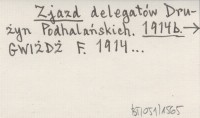 Zjazd delegatów Dru-
żyn Podhalańskich. 1914b. →
GWIŻDŻ F. 1914...